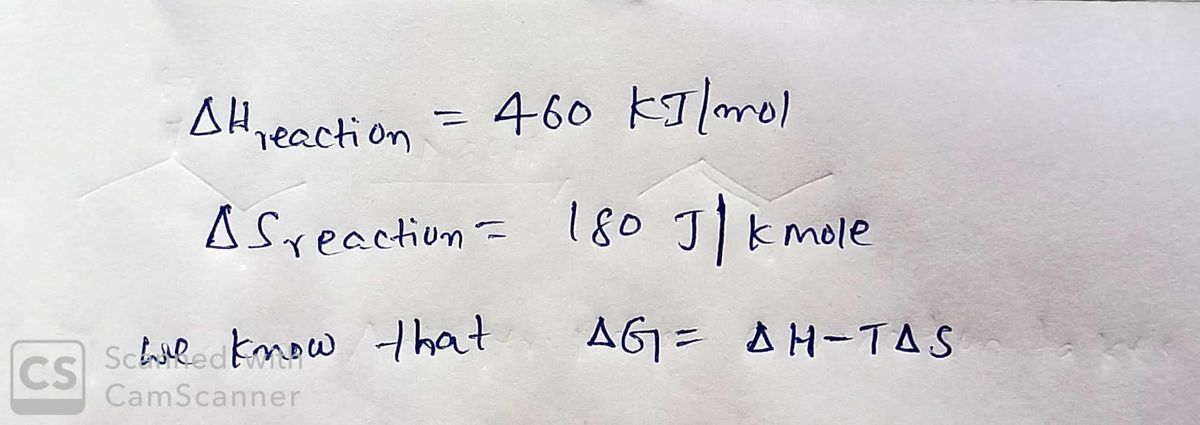 ΔHreaction = 460 KJ/mol
ΔSreaction = 180 J/k mole
we know that ΔG = ΔH-TΔS
CS Scanned with
CamScanner